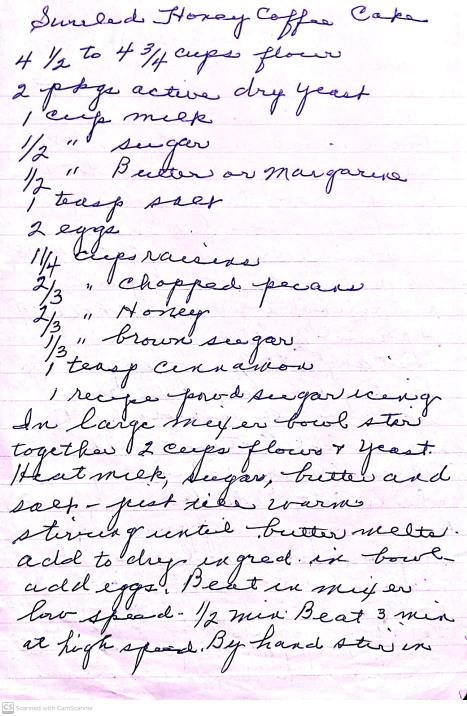 Swirled Honey Coffee Cake
4 1/2 to 4 3/4 cups flour
2 pkgs active dry yeast
1 cup milk
1/2 " sugar
1/2 " Butter or Margarine
1 teasp salt
2 eggs
1 1/4 cups raisins
2/3 " chopped pecans
2/3 " Honey
1/3 " brown sugar
1 teasp cinnamon
1 recipe powd sugar icing
In large mixer bowl stir
together 2 cups flour & yeast.
Heat milk, sugar, butter and
salt - just till warm
stirring until butter melts.
add to dry ingred. in bowl
add eggs. Beat in mixer
low speed - 1/2 min. Beat 3 min
at high speed. By hand stir in
CS Scanned with CamScanner